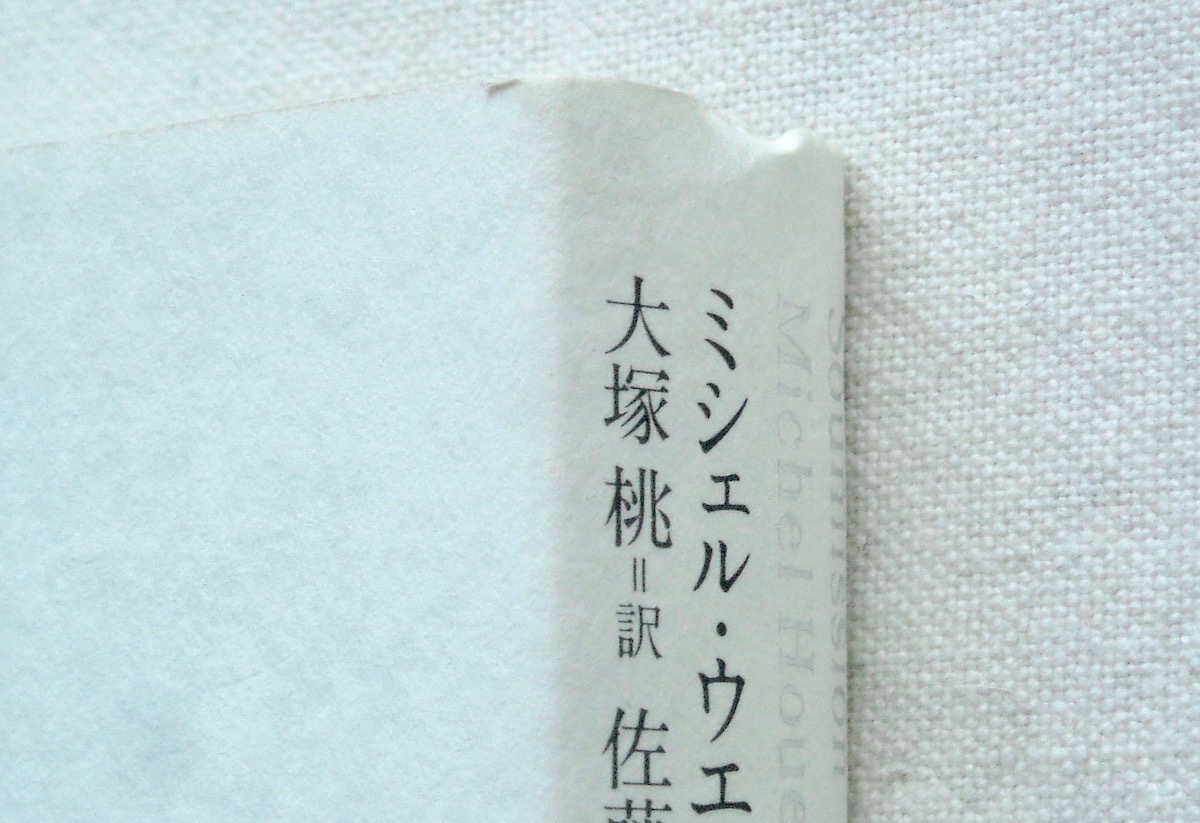 Soumission
Michel Houe
ミシェル・ウエ
大塚 桃=訳 佐藤